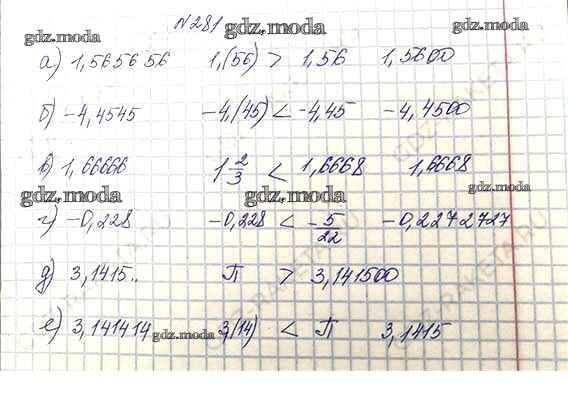 №281
gdz.moda gdz.moda
а) 1,565656 1,(56) > 1,56 1,5600
gdz.moda
б) -4,4545 -4,(45) < -4,45 -4,4500
в) 1,66666 1 2/3 < 1,6668 1,6668
gdz.moda gdz.moda gdz.moda
г) -0,228 -0,228 < -5/22 -0,2272727
д) 3,1415.. П > 3,141500
е) 3,141414 gdz.moda 3,(14) < П 3,1415
gdz.moda
GDZ-RAKETA.RU